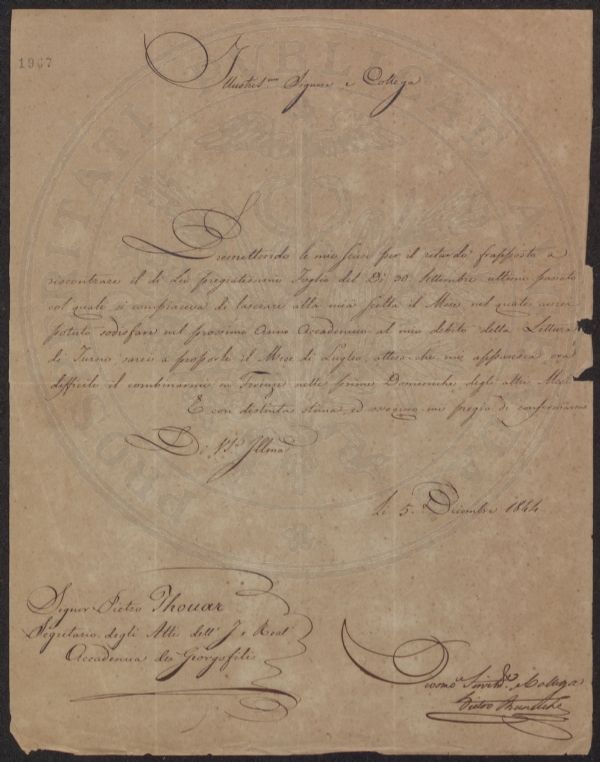 1967
Illustris.mo Signore e Collega
Premettendo le mie scuse per il ritardo frapposto a
riscontrare il di Lei pregiatissimo Foglio del Dì 30 Settembre ultimo passato
col quale si compiaceva di lasciare alla mia scelta il Mese nel quale avrei
potuto sodisfare nel prossimo Anno Accademico al mio debito della Lettura
di Turno sarei a proporle il Mese di Luglio, atteso che mi
difficile il combinarmi in Firenze nelle prime Domeniche degli altri Mesi
E con distinta stima, ed ossequio mi pregio di confermarmi
De V.S. Illma
Li 5. Decembre 1844
Signor Pietro Thouar
Segretario degli Atti dell' I e Real
Accademia dei Georgofili
Collega
Pietro
PROSPERITATI PUBLICAE